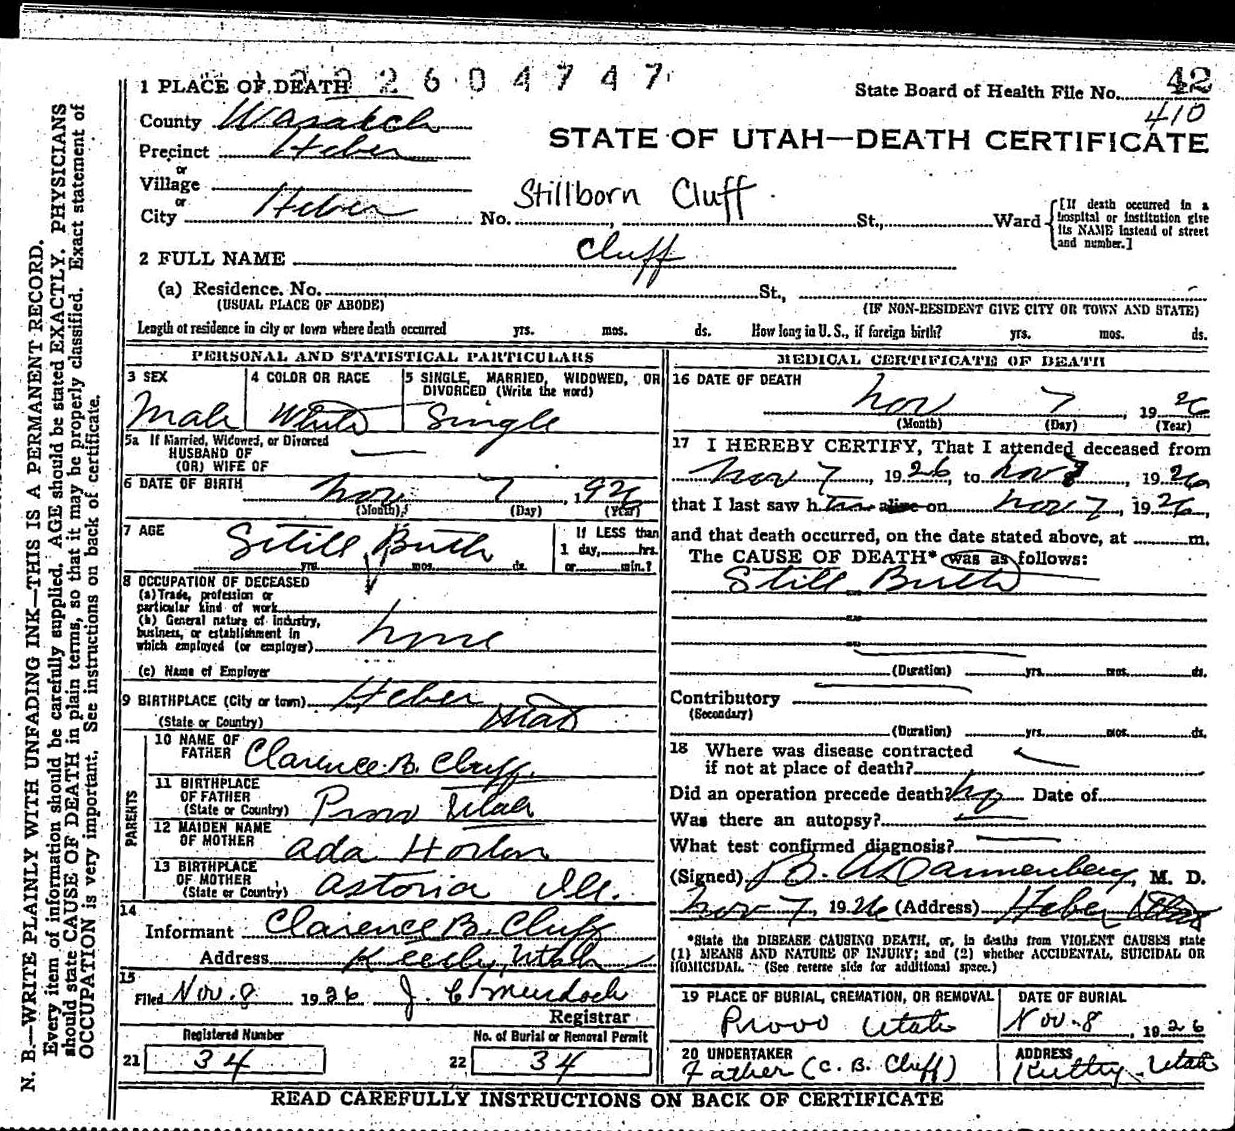 1 PLACE OF DEATH 2604747
State Board of Health File No. 42
410
County Wasatch
STATE OF UTAH—DEATH CERTIFICATE
Precinct Heber
or
Village
or
City Heber No. , St., Ward
Stillborn Cluff
[If death occurred in a hospital or institution give its NAME instead of street and number.]
2 FULL NAME Cluff
(a) Residence. No. St.,
(USUAL PLACE OF ABODE) (IF NON-RESIDENT GIVE CITY OR TOWN AND STATE)
Length of residence in city or town where death occurred yrs. mos. ds. How long in U. S., if foreign birth? yrs. mos. ds.
PERSONAL AND STATISTICAL PARTICULARS
3 SEX
Male
4 COLOR OR RACE
White
5 SINGLE, MARRIED, WIDOWED, OR
DIVORCED (Write the word)
Single
5a If Married, Widowed, or Divorced
HUSBAND OF
(OR) WIFE OF
6 DATE OF BIRTH Nov 7, 1926
(Month) (Day) (Year)
7 AGE
Still Birth
yrs. mos. ds.
If LESS than
1 day, hrs.
or min.?
8 OCCUPATION OF DECEASED
(a) Trade, profession or
particular kind of work
(b) General nature of industry,
business, or establishment in
which employed (or employer)
none
(c) Name of Employer
9 BIRTHPLACE (City or town) Heber
(State or Country) Utah
PARENTS
10 NAME OF
FATHER Clarence B. Cluff
11 BIRTHPLACE
OF FATHER
(State or Country) Provo Utah
12 MAIDEN NAME
OF MOTHER Ada Horton
13 BIRTHPLACE
OF MOTHER
(State or Country) Astoria Ill.
14
Informant Clarence B. Cluff
Address Utah
15
Filed Nov. 8 1926 J. C. Murdoch
Registrar
Registered Number
21 34
No. of Burial or Removal Permit
22 34
MEDICAL CERTIFICATE OF DEATH
16 DATE OF DEATH
Nov 7, 1926
(Month) (Day) (Year)
17 I HEREBY CERTIFY, That I attended deceased from
Nov 7, 1926, to Nov 8, 1926
that I last saw h alive on Nov 7, 1926,
and that death occurred, on the date stated above, at m.
The CAUSE OF DEATH* was as follows:
Still Birth
(Duration) yrs. mos. ds.
Contributory
(Secondary)
(Duration) yrs. mos. ds.
18 Where was disease contracted
if not at place of death?
Did an operation precede death? No Date of
Was there an autopsy?
What test confirmed diagnosis?
(Signed) Dannenberg, M. D.
Nov 7, 1926 (Address) Heber Utah
*State the DISEASE CAUSING DEATH, or, in deaths from VIOLENT CAUSES state
(1) MEANS AND NATURE OF INJURY; and (2) whether ACCIDENTAL, SUICIDAL OR
HOMICIDAL. (See reverse side for additional space.)
19 PLACE OF BURIAL, CREMATION, OR REMOVAL
Provo Utah
DATE OF BURIAL
Nov. 8, 1926
20 UNDERTAKER
Father (C. B. Cluff)
ADDRESS
Utah
READ CAREFULLY INSTRUCTIONS ON BACK OF CERTIFICATE
N. B.—WRITE PLAINLY WITH UNFADING INK—THIS IS A PERMANENT RECORD.
Every item of information should be carefully supplied. AGE should be stated EXACTLY. PHYSICIANS
should state CAUSE OF DEATH in plain terms, so that it may be properly classified. Exact statement of
OCCUPATION is very important. See instructions on back of certificate.